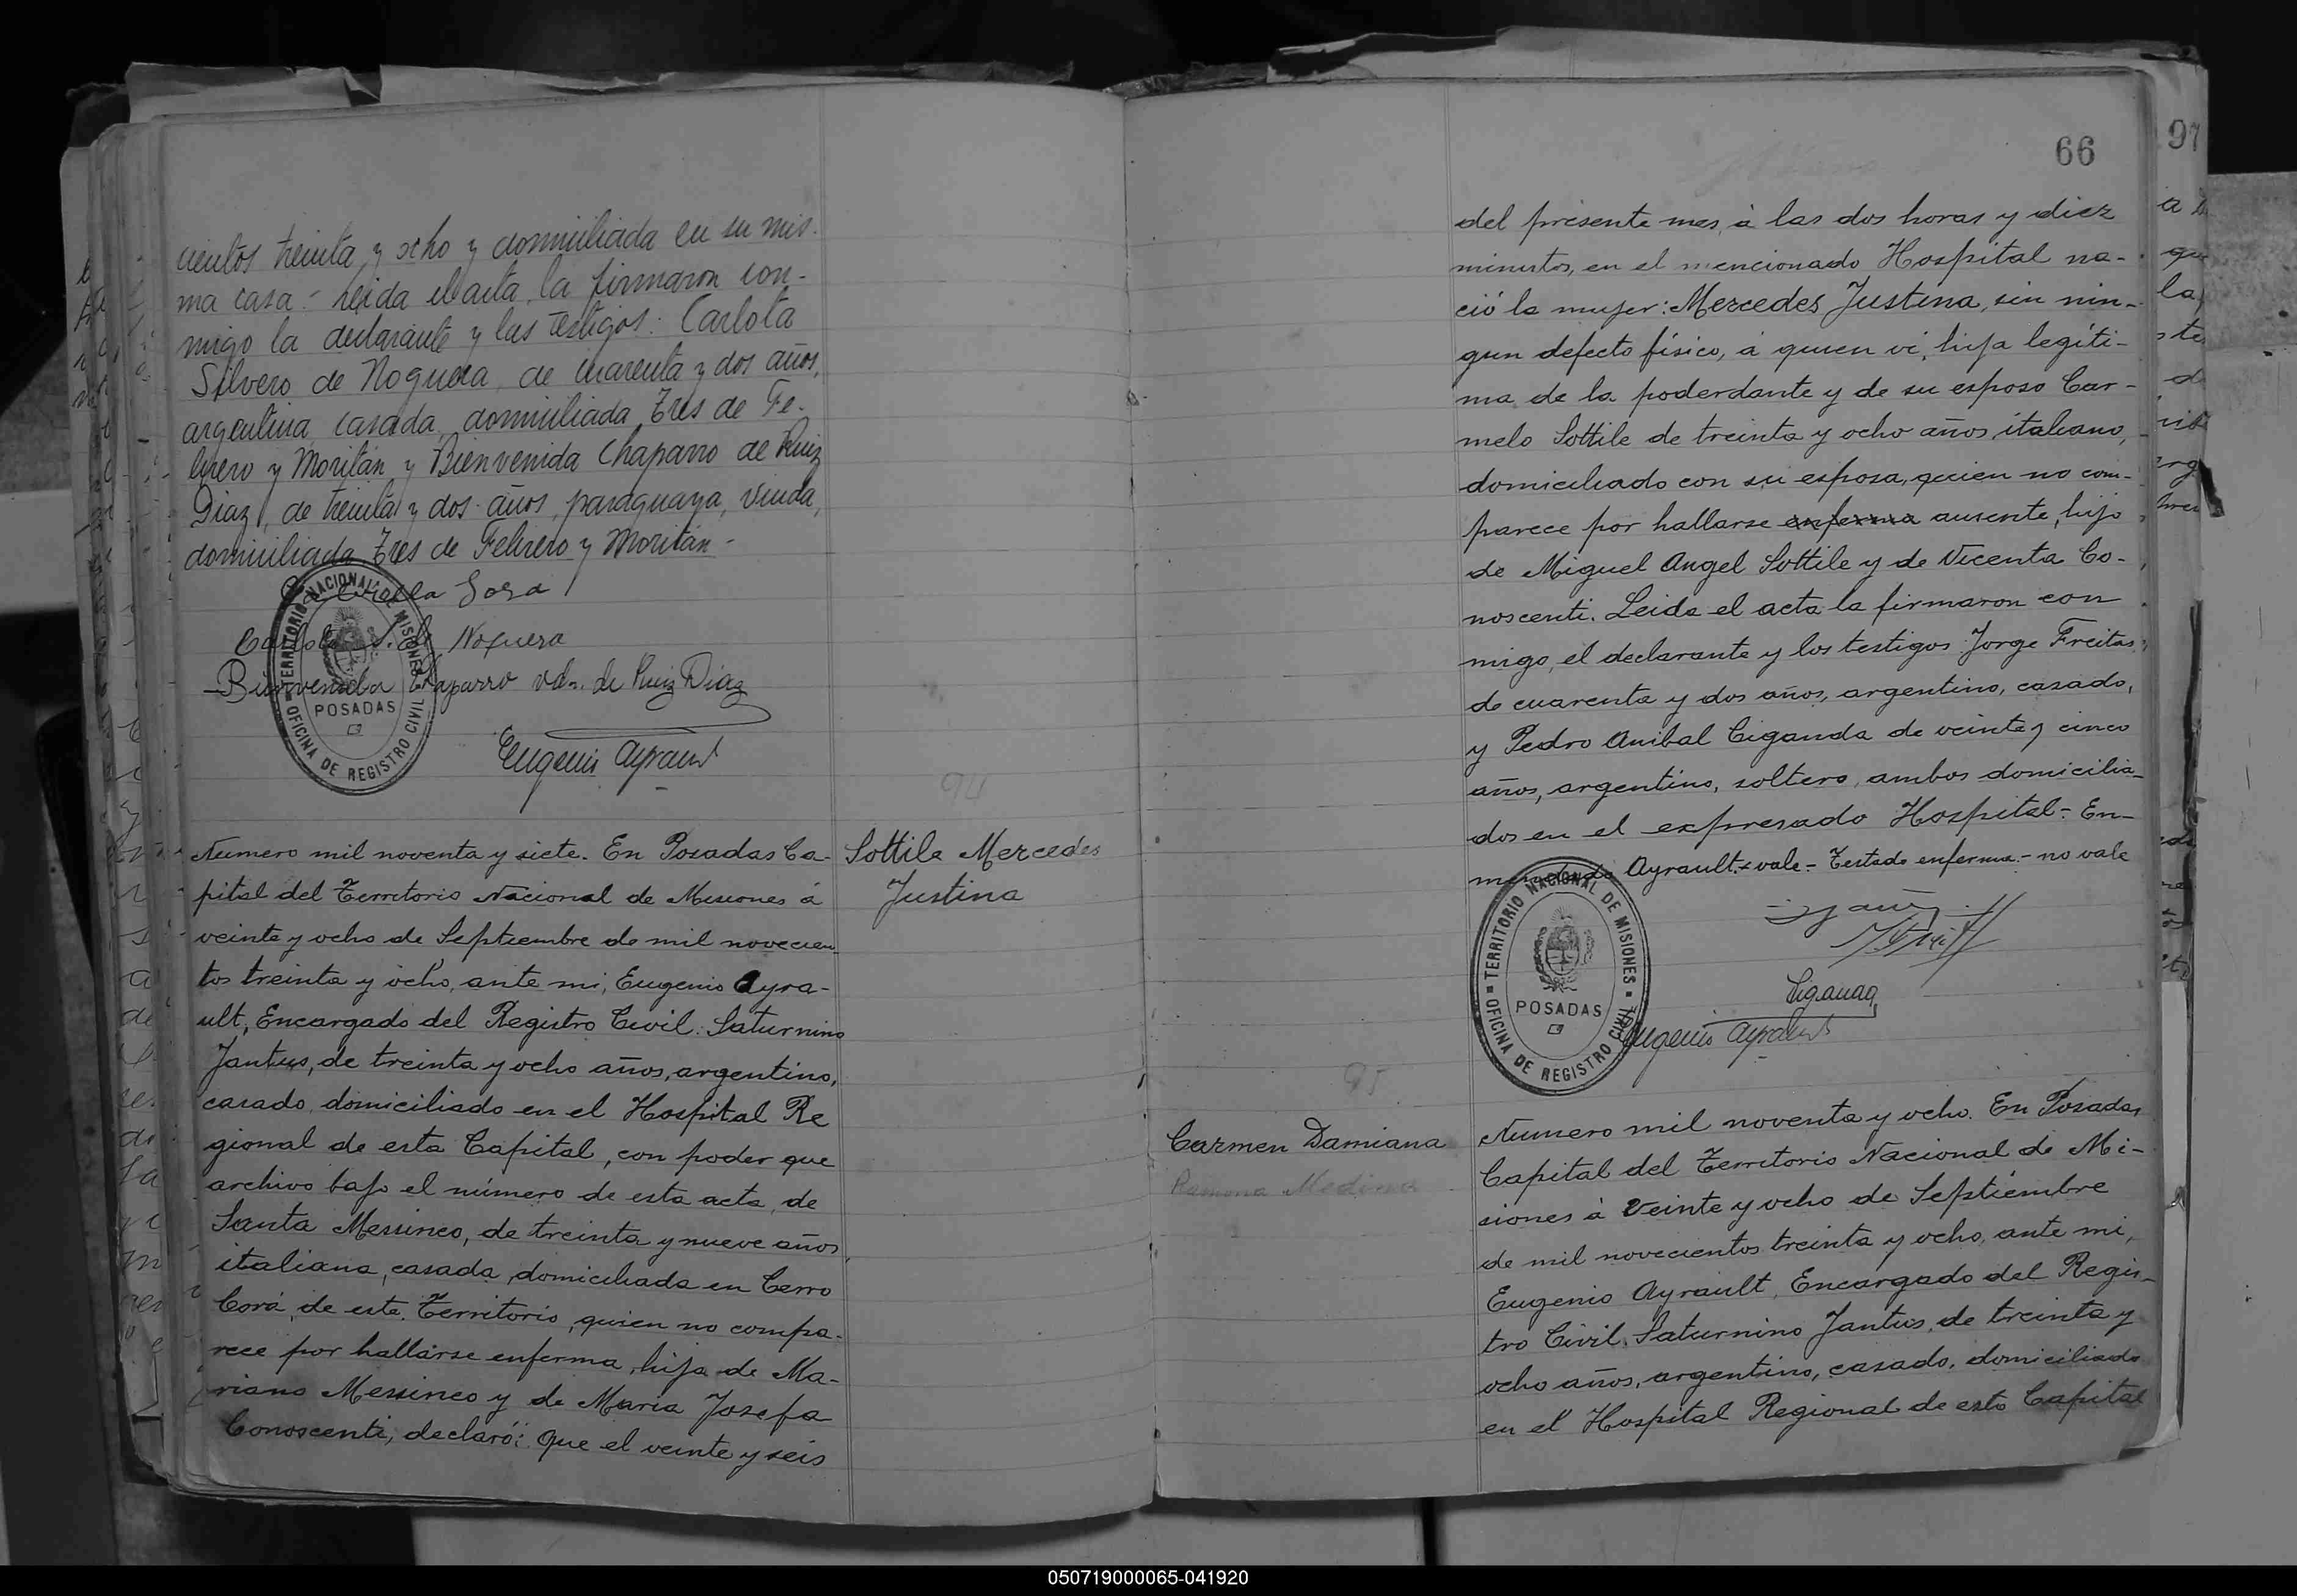 cientos treinta y ocho y domiciliada en su mis-
ma casa.- Leida el acta, la firmaron con-
migo la declarante y las testigos: Carlota
Silvero de Noguera, de cuarenta y dos años,
argentina, casada, domiciliada Tres de Fe-
brero y Moritán y Bienvenida Chaparro de Ruiz
Diaz, de treinta y dos años, paraguaya, viuda,
domiciliada Tres de Febrero y Moritán-
Sosa
Carlota S. de Noguera
Bienvenida Chaparro vda. de Ruiz Diaz
Eugenio Ayrault
TERRITORIO NACIONAL DE MISIONES
POSADAS
OFICINA DE REGISTRO CIVIL
94
Sottile Mercedes
Justina
Numero mil noventa y siete. En Posadas Ca-
pital del Territorio Nacional de Misiones á
veinte y ocho de Septiembre de mil novecien
tos treinta y ocho, ante mi, Eugenio Ayra-
ult, Encargado del Registro Civil: Saturnino
Jantus, de treinta y ocho años, argentino,
casado, domiciliado en el Hospital Re
gional de esta Capital, con poder que
archivo bajo el número de esta acta, de
Santa Messineo, de treinta y nueve años,
italiana, casada, domiciliada en Cerro
Corá, de este Territorio, quien no compa-
rece por hallarse enferma, hija de Ma-
riano Messineo y de Maria Josefa
Conoscenti, declaró: Que el veinte y seis
66
del presente mes, á las dos horas y diez
minutos, en el mencionado Hospital na-
ció la mujer: Mercedes Justina, sin nin-
gun defecto físico, á quien vi, hija legíti-
ma de la poderdante y de su esposo Car-
melo Sottile de treinta y ocho años, italiano,
domiciliado con su esposa, quien no com-
parece por hallarse enferma ausente, hijo
de Miguel Angel Sottile y de Vicenta Co-
noscenti. Leida el acta la firmaron con
migo, el declarante y los testigos: Jorge Freitas,
de cuarenta y dos años, argentino, casado,
y Pedro Anibal Ciganda de veinte y cinco
años, argentino, soltero, ambos domicilia-
dos en el expresado Hospital.- En-
mendado Ayrault.- vale.- Testado enferma.- no vale
Ciganda
Eugenio Ayrault
TERRITORIO NACIONAL DE MISIONES
POSADAS
OFICINA DE REGISTRO CIVIL
95
Carmen Damiana
Ramona Medina
Numero mil noventa y ocho. En Posadas,
Capital del Territorio Nacional de Mi-
siones á veinte y ocho de Septiembre
de mil novecientos treinta y ocho, ante mi,
Eugenio Ayrault, Encargado del Regis-
tro Civil, Saturnino Jantus, de treinta y
ocho años, argentino, casado, domiciliado
en el Hospital Regional de esta Capital
97
050719000065-041920